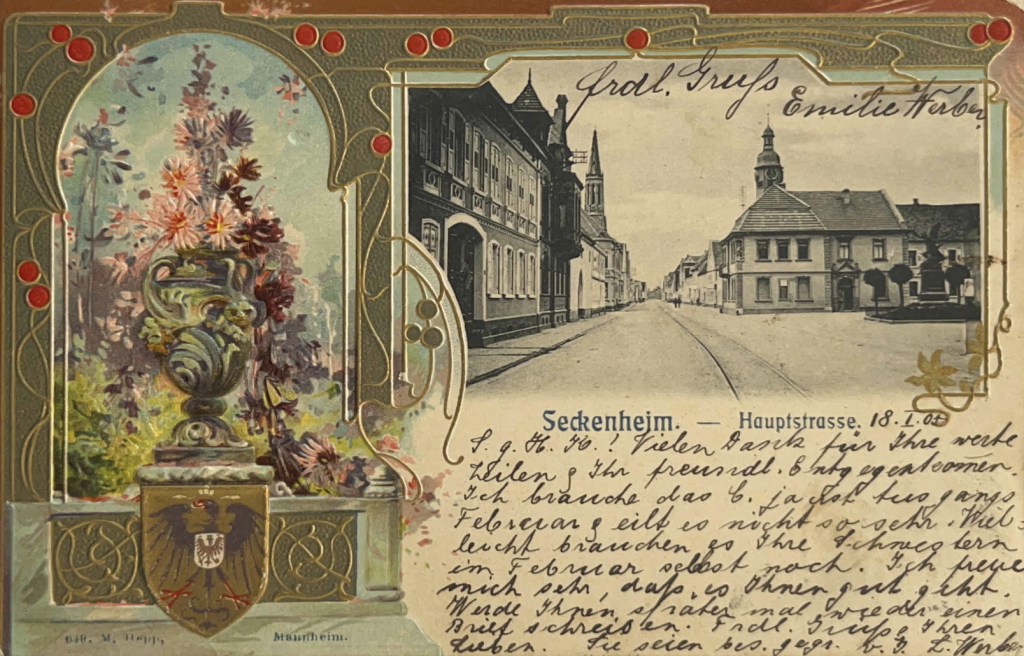 frdl. Gruß
Emilie Werber
Seckenheim. — Hauptstrasse. 18. I. 01
S. g. H. K.! Vielen Dank für Ihre werte
Zeilen & Ihr freundl. Entgegenkommen.
Ich brauche das C. ja erst Ausgangs
Februar & eilt es nicht so sehr. Viel-
leicht brauchen es Ihre Schwestern
im Februar selbst noch. Ich freue
mich sehr, daß es Ihnen gut geht.
Werde Ihnen später mal wieder einen
Brief schreiben. Frdl. Gruß Ihren
Lieben. Sie seien bes. gegr. v. I. L. Werber
Mannheim.